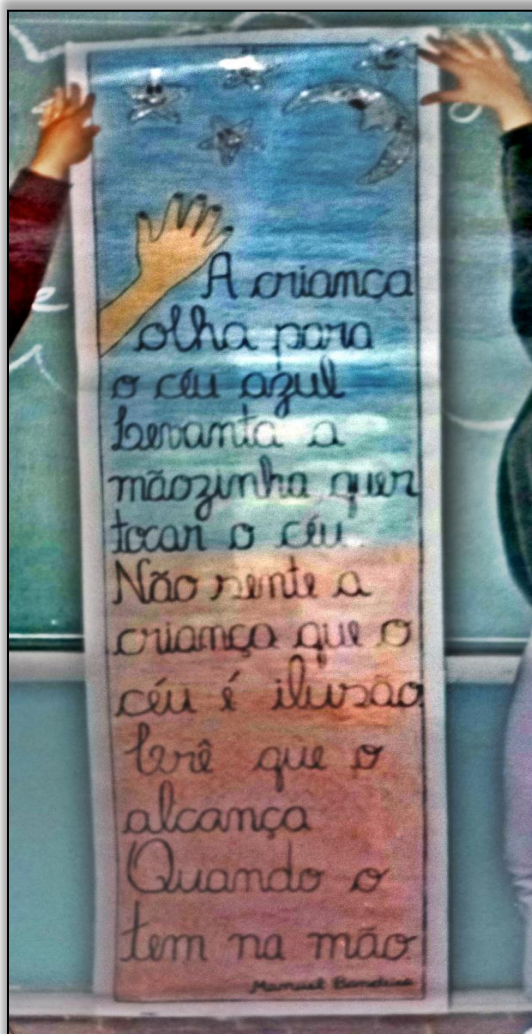 A criança
olha para
o céu azul
Levanta a
mãozinha, quer
tocar o céu.
Não sente a
criança que o
céu é ilusão
Crê que o
alcança
Quando o
tem na mão.
Manuel Bandeira